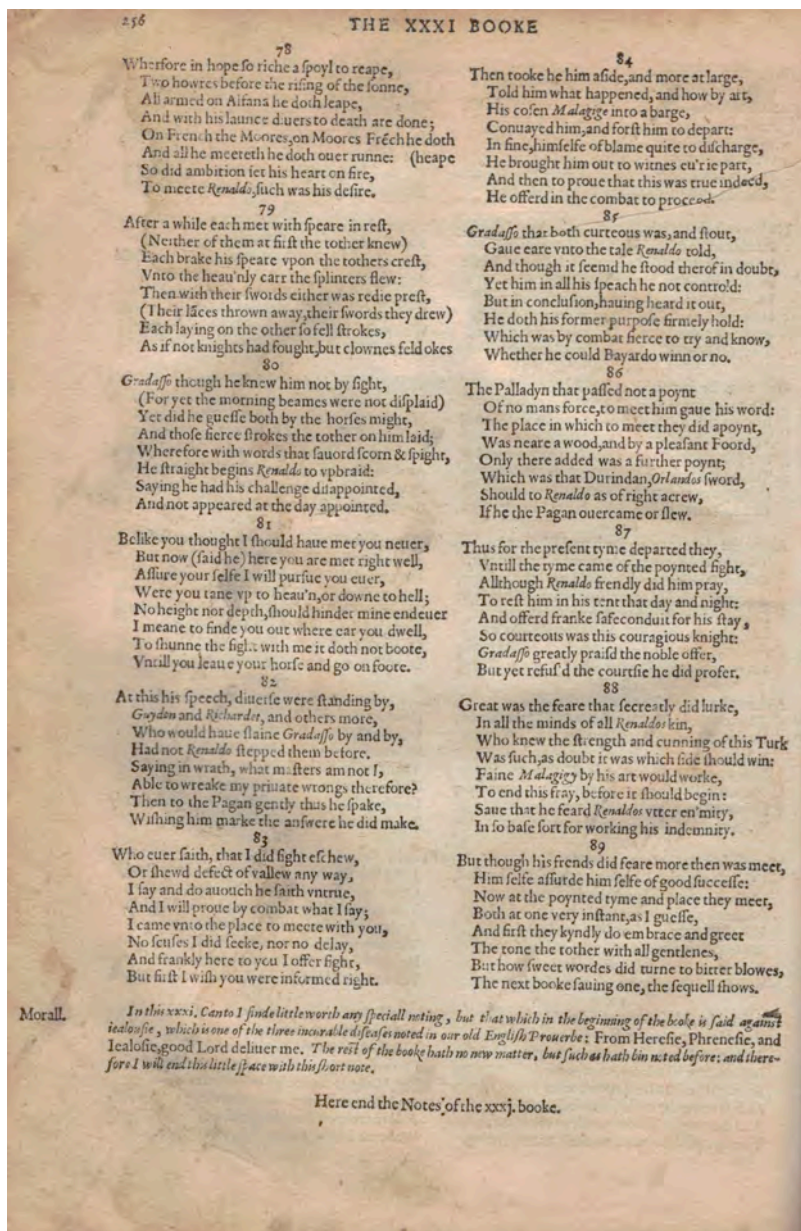 256
THE XXXI BOOKE
78
Wherfore in hope ſo riche a ſpoyl to reape,
Two howres before the riſing of the ſonne,
All armed on Alfana he doth leape,
And with his launce diuers to death are done;
On French the Moores,on Moores Frēch he doth
And all he meeteth he doth ouer runne: (heape
So did ambition ſet his heart on fire,
To meete Renaldo,ſuch was his deſire.
79
After a while each met with ſpeare in reſt,
(Neither of them at firſt the tother knew)
Each brake his ſpeare vpon the tothers creſt,
Vnto the heau'nly carr the ſplinters flew:
Then with their ſwords either was redie preſt,
(Their lāces thrown away,their ſwords they drew)
Each laying on the other ſo fell ſtrokes,
As if not knights had fought,but clownes feld okes
80
Gradaſſo though he knew him not by ſight,
(For yet the morning beames were not diſplaid)
Yet did he gueſſe both by the horſes might,
And thoſe fierce ſtrokes the tother on him laid;
Wherefore with words that ſauord ſcorn & ſpight,
He ſtraight begins Renaldo to vpbraid:
Saying he had his challenge diſappointed,
And not appeared at the day appointed.
81
Belike you thought I ſhould haue met you neuer,
But now (ſaid he) here you are met right well,
Aſſure your ſelfe I will purſue you euer,
Were you tane vp to heau'n,or downe to hell;
No height nor depth,ſhould hinder mine endeuer
I meane to finde you out where ear you dwell,
To ſhunne the fight with me it doth not boote,
Vntill you leaue your horſe and go on foote.
82
At this his ſpeech, diuerſe were ſtanding by,
Guydon and Richardet, and others more,
Who would haue ſlaine Gradaſſo by and by,
Had not Renaldo ſtepped them before.
Saying in wrath, what maſters am not I,
Able to wreake my priuate wrongs therefore?
Then to the Pagan gently thus he ſpake,
Wiſhing him marke the anſwere he did make.
83
Who euer ſaith, that I did fight eſchew,
Or ſhewd defect of vallew any way,
I ſay and do auouch he ſaith vntrue,
And I will proue by combat what I ſay;
I came vnto the place to meete with you,
No ſcuſes I did ſeeke, nor no delay,
And frankly here to you I offer fight,
But firſt I wiſh you were informed right.
84
Then tooke he him aſide,and more at large,
Told him what happened, and how by art,
His coſen Malagige into a barge,
Conuayed him,and forſt him to depart:
In fine,himſelfe of blame quite to diſcharge,
He brought him out to witnes eu'rie part,
And then to proue that this was true indeed,
He offerd in the combat to proceed.
85
Gradaſſo that both curteous was,and ſtout,
Gaue eare vnto the tale Renaldo told,
And though it ſeemd he ſtood therof in doubt,
Yet him in all his ſpeach he not controld:
But in concluſion,hauing heard it out,
He doth his former purpoſe firmely hold:
Which was by combat fierce to try and know,
Whether he could Bayardo winn or no.
86
The Palladyn that paſſed not a poynt
Of no mans force,to meet him gaue his word:
The place in which to meet they did apoynt,
Was neare a wood,and by a pleaſant Foord,
Only there added was a further poynt;
Which was that Durindan,Orlandos ſword,
Should to Renaldo as of right acrew,
If he the Pagan ouercame or ſlew.
87
Thus for the preſent tyme departed they,
Vntill the tyme came of the poynted fight,
Allthough Renaldo frendly did him pray,
To reſt him in his tent that day and night:
And offerd franke ſafeconduit for his ſtay,
So courteous was this couragious knight:
Gradaſſo greatly praiſd the noble offer,
But yet refuſ'd the courtſie he did profer.
88
Great was the feare that ſecreatly did lurke,
In all the minds of all Renaldos kin,
Who knew the ſtrength and cunning of this Turk
Was ſuch,as doubt it was which ſide ſhould win:
Faine Malagigy by his art would worke,
To end this fray, before it ſhould begin:
Saue that he feard Renaldos vtter en'mity,
In ſo baſe ſort for working his indemnity.
89
But though his frends did feare more then was meet,
Him ſelfe aſſurde him ſelfe of good ſucceſſe:
Now at the poynted tyme and place they meet,
Both at one very inſtant,as I gueſſe,
And firſt they kyndly do embrace and greet
The tone the tother with all gentlenes,
But how ſweet wordes did turne to bitter blowes,
The next booke ſauing one, the ſequell ſhows.
Morall.
In this xxxi. Canto I finde little worth any ſpeciall noting, but that which in the beginning of the booke is ſaid againſt
iealouſie, which is one of the three incurable diſeaſes noted in our old Engliſh Prouerbe: From Hereſie, Phreneſie, and
Iealoſie,good Lord deliuer me. The reſt of the booke hath no new matter, but ſuch as hath bin noted before; and there-
fore I will end this little ſpace with this ſhort note.
Here end the Notes of the xxxj. booke.